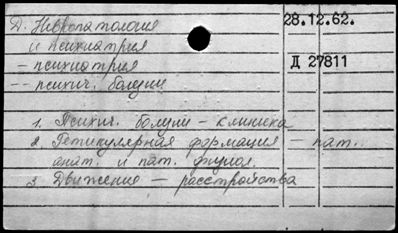 Д. Невропатология
и психиатрия
28.12.62.
— психиатрия
Д 27811
-- психич. болузи
1. Психич. болузи — клиника
2. Ретикулярная формация — пат.
анат. и пат. физиол.
3. Движение — расстройства